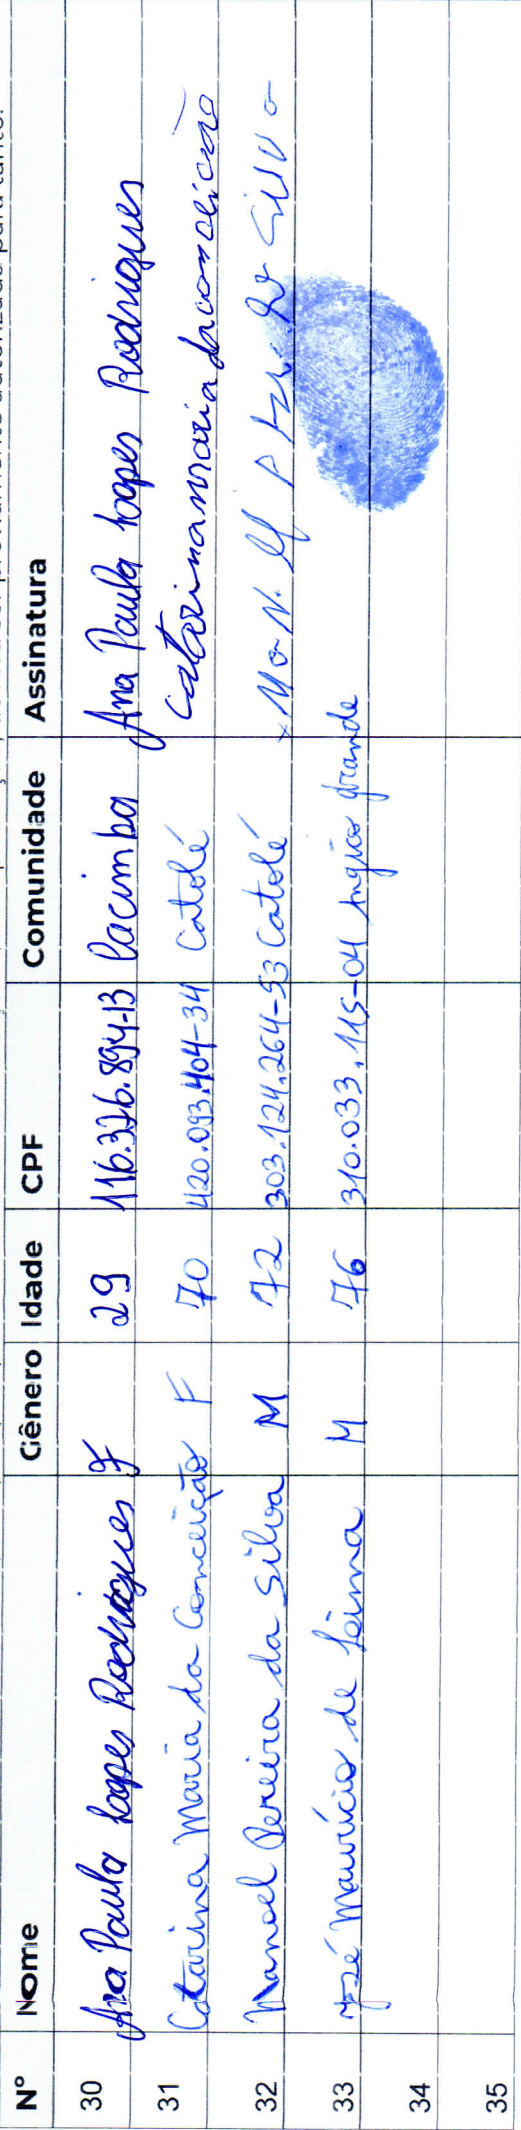 Nº Nome Gênero Idade CPF Comunidade Assinatura
30 Ana Paula Lopes Rodrigues F 29 116.326.894-13 Cacimba Ana Paula Lopes Rodrigues
31 Catarina Maria da Conceição F 70 420.093.404-34 Catolé Catarina maria da conceicão
32 Manoel Pereira da Silva M 72 303.124.264-53 Catolé
33 José Maurício de Leima M 76 310.033.115-04 Angico grande
34
35